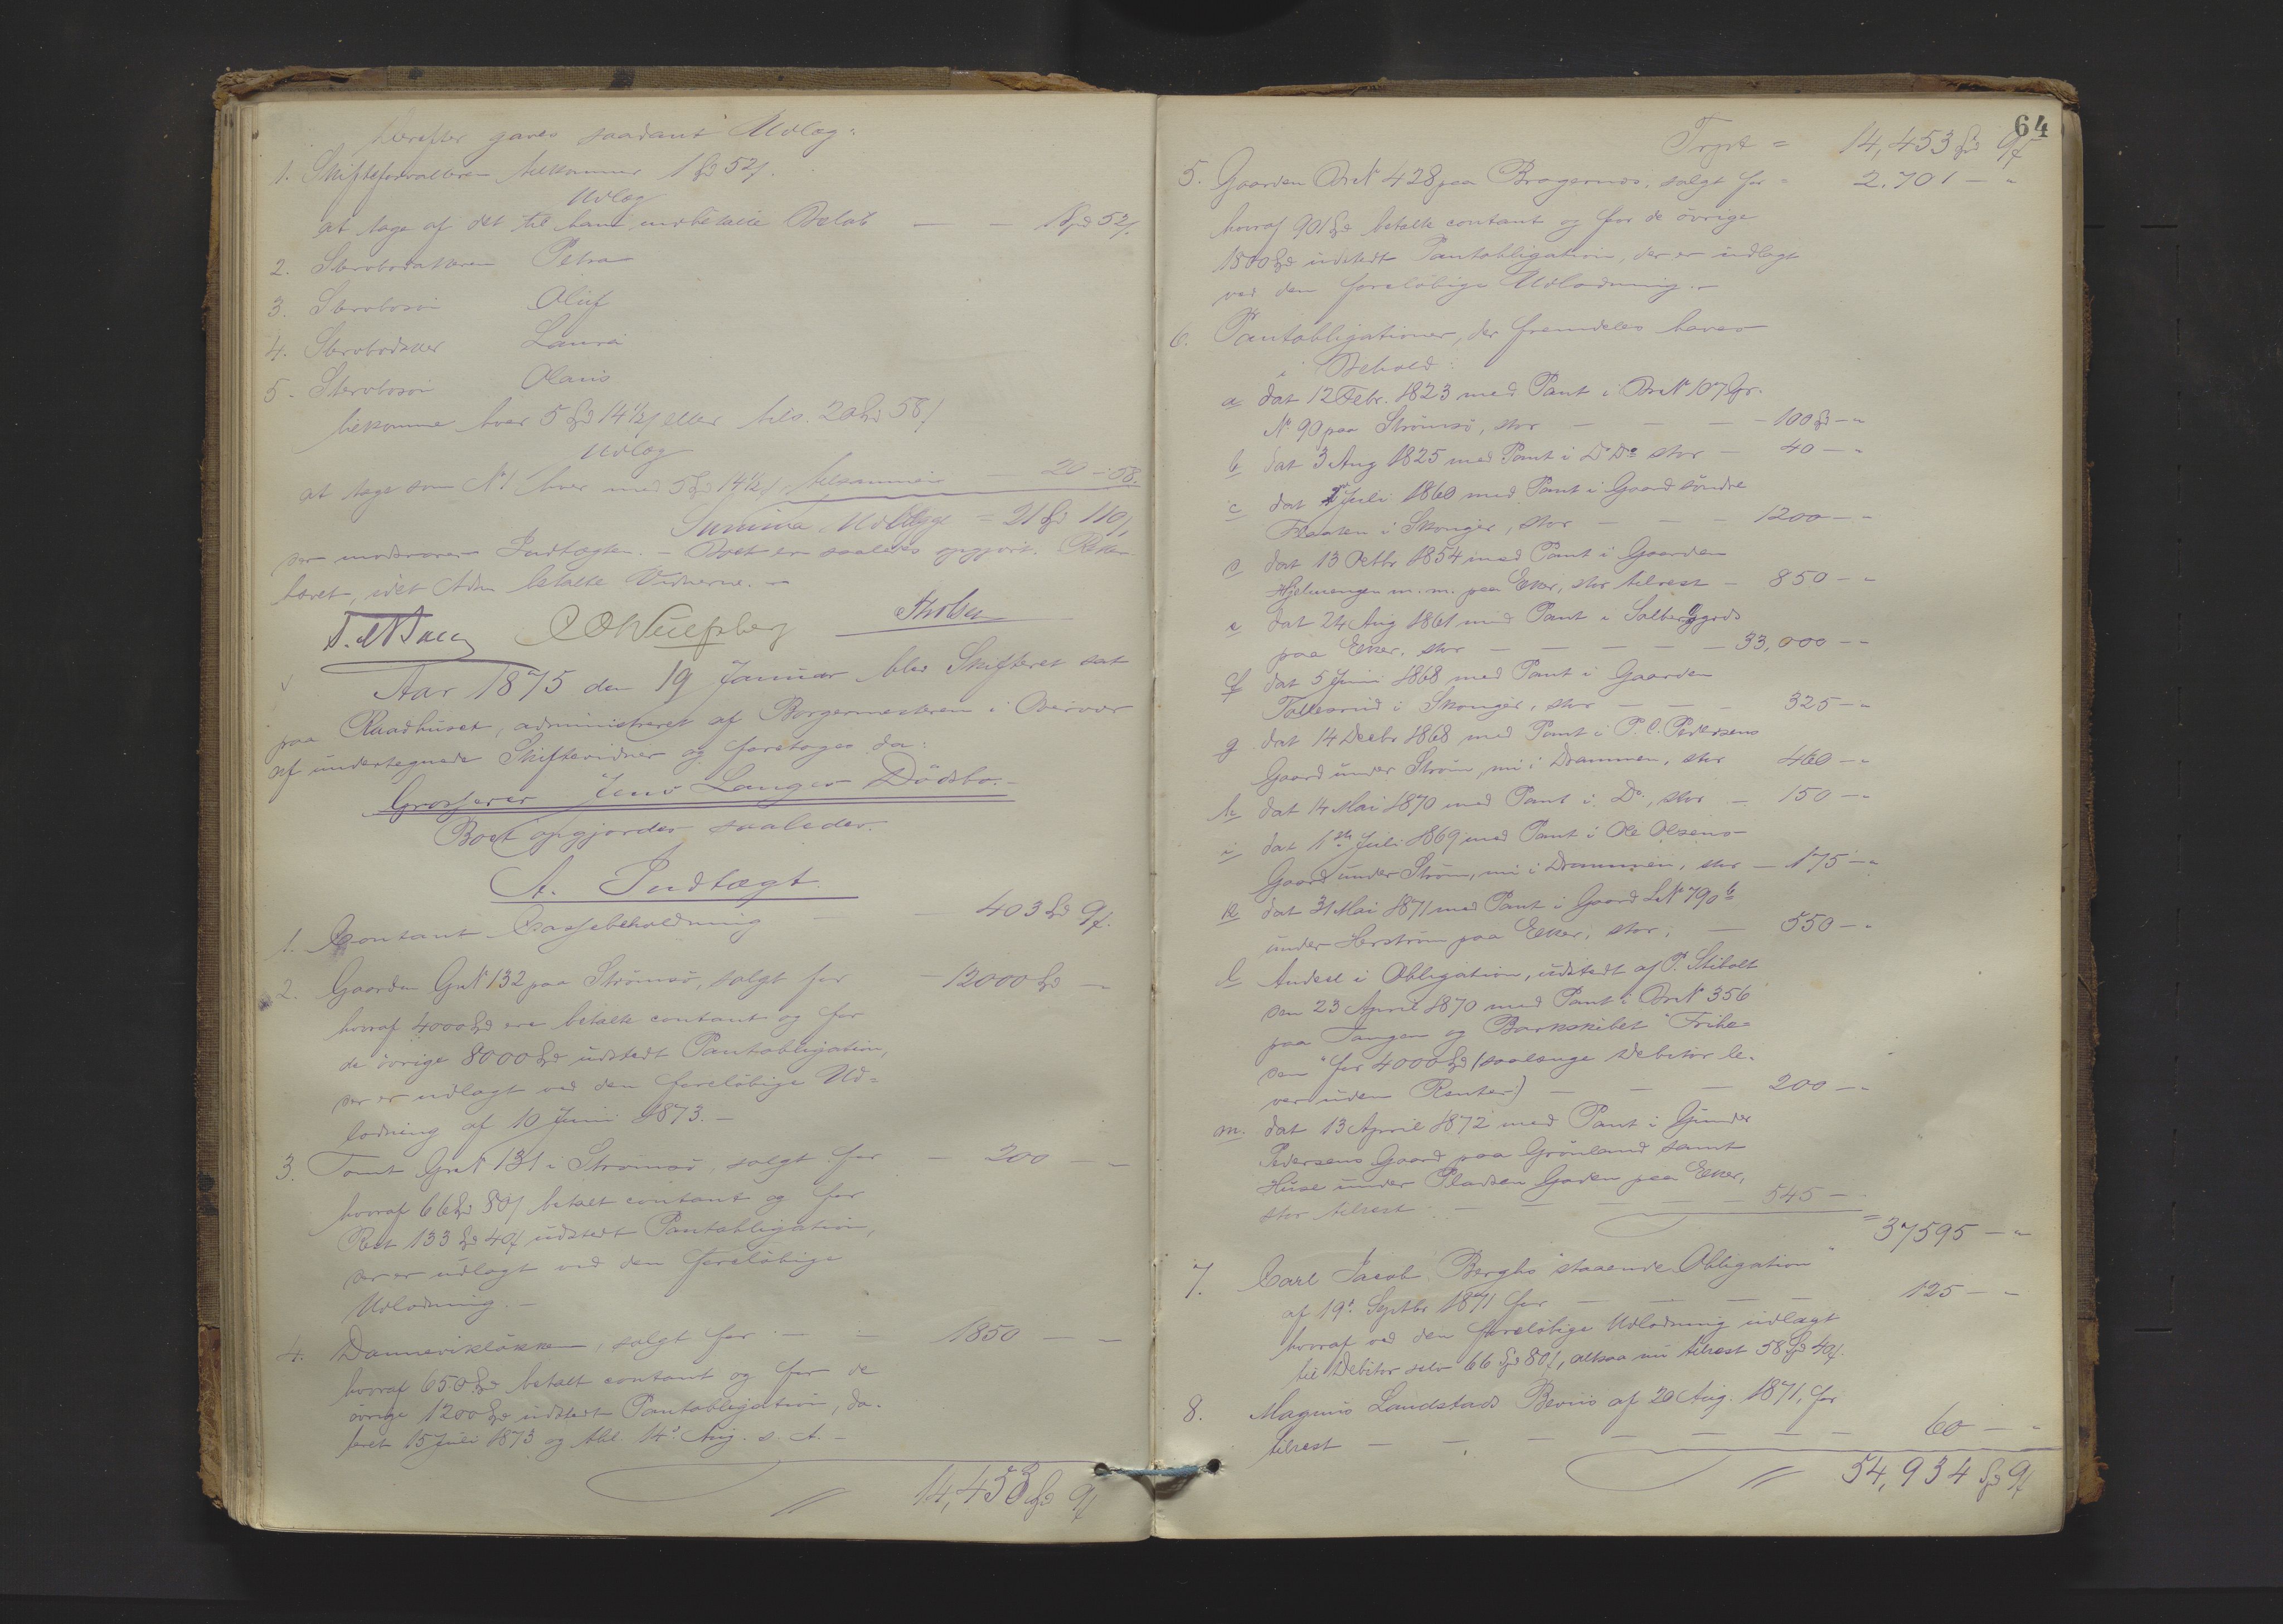 herefter gaves saadant Udlæg:
1. Skifteforvalteren tilkommer 1 Spd 52 ß.
Udlæg
at tage af det til ham indbetalte Beløb — — 1 Spd 52 ß.
2. Stervbodatteren Petra
3. Stervbosøn Oluf
4. Stervbodatter Laura
5. Stervbosøn Olaus
bekomme hver 5 Spd 14½ ß eller tils. 20 Spd 58 ß
Udlæg
at tage som No 1 hver med 5 Spd 14½ ß, tilsammen 20 - 58.
Summa Udlægge = 21 Spd 110 ß,
som modsvarer Indtægten. - Boet er saaledes opgjort.
hævet, idet Adm betalte Vidnerne. -
Aar 1875 den 19 Januar blev Skifteret sat
paa Raadhuset, administreret af Borgermesteren i Overvær
af undertegnede Skiftevidner og foretoges da:
Grosserer Jens Langes Dødsbo. -
Boet opgjordes saaledes.
A. Indtægt.
1. Contant Cassebeholdning — — 403 Spd 9 ß.
2. Gaarden Gr No 132 paa Strømsø, solgt for — 12000 Spd —
hvoraf 4000 Spd ere betalte contant og for
de övrige 8000 Spd udstedt Pantobligation,
der er udlagt ved den foreløbige Ud=
lodning af 10 Juni 1873. -
3. Tomt Gr No 131 i Strømsø, solgt for — 200 — —
hvoraf 66 Spd 80 ß betalt contant og for
Rest 133 Spd 40 ß udstedt Pantobligation,
der er udlagt ved den foreløbige
Udlodning. -
4. Danneviksløkken, solgt for — — 1850 — —
hvoraf 650 Spd betalt contant og for de
övrige 1200 Spd udstedt Pantobligation, da-
teret 15 Juli 1873 og thl. 14d Aug. s. A. -
14,453 Spd 9 ß
64
Trpt = 14,453 Spd 9 ß
5. Gaarden Br No 428 paa Bragernes, solgt for = 2.701 — "
hvoraf 901 Spd betalte contant og for de övrige
1800 Spd udstedt Pantobligation, der er udlagt
ved den foreløbige Udlodning. -
6. Pantobligationer, der fremdeles haves
i Behold:
a dat 12 Febr. 1823 med Pant i Br No 107 Gr.
No 90 paa Strømsø, stor — — — 100 Spd — "
b dat 3 Aug 1825 med Pant i Do Do stor — 40 — "
c dat Juli 1860 med Pant i Gaard søndre
Flaaten i Skouger, stor — — — 1200 — —
d dat 13 Octbr 1854 med Pant i Gaarden
Hjelmengen m. m. paa Eker, stor tilrest — 850 — "
e dat 24 Aug 1861 med Pant i Solberggods
paa Eker, stor — — — — — 33,000 — —
f dat 5 Juni 1868 med Pant i Gaarden
Tollerud i Skouger, stor — — — 325 — "
g dat 14 Decbr 1868 med Pant i P. C. Pedersens
Gaard under Strøm, nu i Drammen, stor 460 — "
h dat 14 Mai 1870 med Pant i Do, stor — 150 — "
i dat 1ste Juli 1869 med Pant i Ole Olsens
Gaard under Strøm, nu i Drammen, stor — 175 — "
k dat 31 Mai 1871 med Pant i Gaard L No 790 b
under Herstrøm paa Eker, stor, — 550 — "
l Andeel i Obligation, udstedt af P. Stibolt
den 23 April 1870 med Pant i Br No 356
paa Tangen og Barkskibet "Trihe=
den" for 4000 Spd (saalænge Debitor le-
ver uden Renter) — — 200 — "
m. dat 13 April 1872 med Pant i Gunder
Pedersens Gaard paa Grønland samt
Huse under Pladsen Gaden paa Eker,
stor tilrest — — — — 545 —
= 37595 — "
7. Carl Jacob Berghs "staaende Obligation"
af 19d Septbr 1871 for — — — — 125 — "
hvoraf ved den foreløbige Udlodning udlagt
til Debitor selv 66 Spd 80 ß, altsaa nu tilrest 58 Spd 40 ß.
8. Magnus Landstads Beviis af 20 Aug. 1871, for
tilrest — — — — — — — 60 — "
54,934 Spd 9 ß